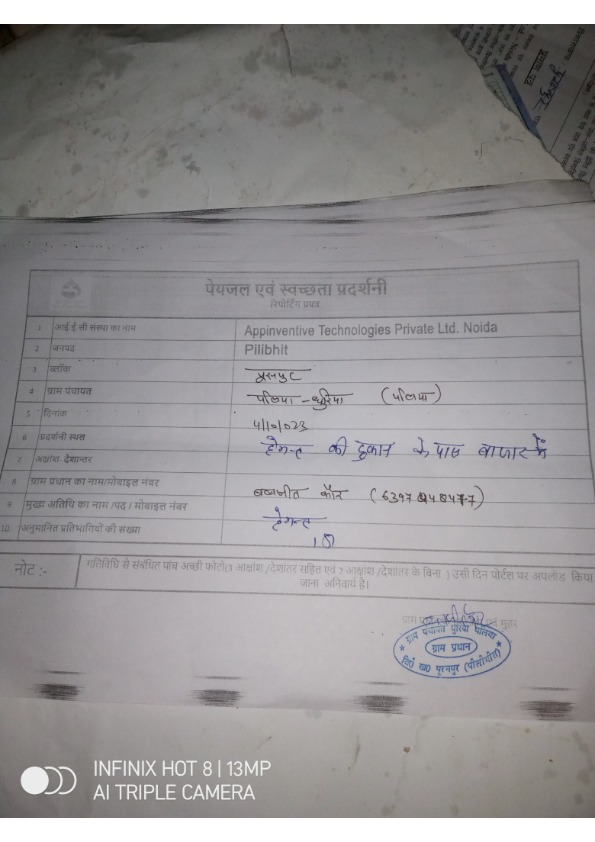 पेयजल एवं स्वच्छता प्रदर्शनी
रिपोर्टिंग प्रपत्र
1 आई ई सी संस्था का नाम Appinventive Technologies Private Ltd. Noida
2 जनपद Pilibhit
3 ब्लॉक पूरनपुर
4 ग्राम पंचायत पलिया - धुरिया (पलिया)
5 दिनांक 4/10/023
6 प्रदर्शनी स्थल हेमन्त की दुकान के पास बाजार में
7 अक्षांश-देशान्तर
8 ग्राम प्रधान का नाम/मोबाइल नंबर कौर
9 मुख्य अतिथि का नाम /पद / मोबाइल नंबर हेमन्त
10. अनुमानित प्रतिभागियों की संख्या
नोट :- गतिविधि से संबंधित पांच अच्छी फोटो(3 आक्षांश /देशांतर सहित एवं 2 आक्षांश /देशांतर के बिना ) उसी दिन पोर्टल पर अपलोड किया
जाना अनिवार्य है।
ग्राम मुहर
ग्राम पंचायत धुरिया पलिया
ग्राम प्रधान
वि० ख० पूरनपुर (पीलीभीत)
INFINIX HOT 8 | 13MP
AI TRIPLE CAMERA